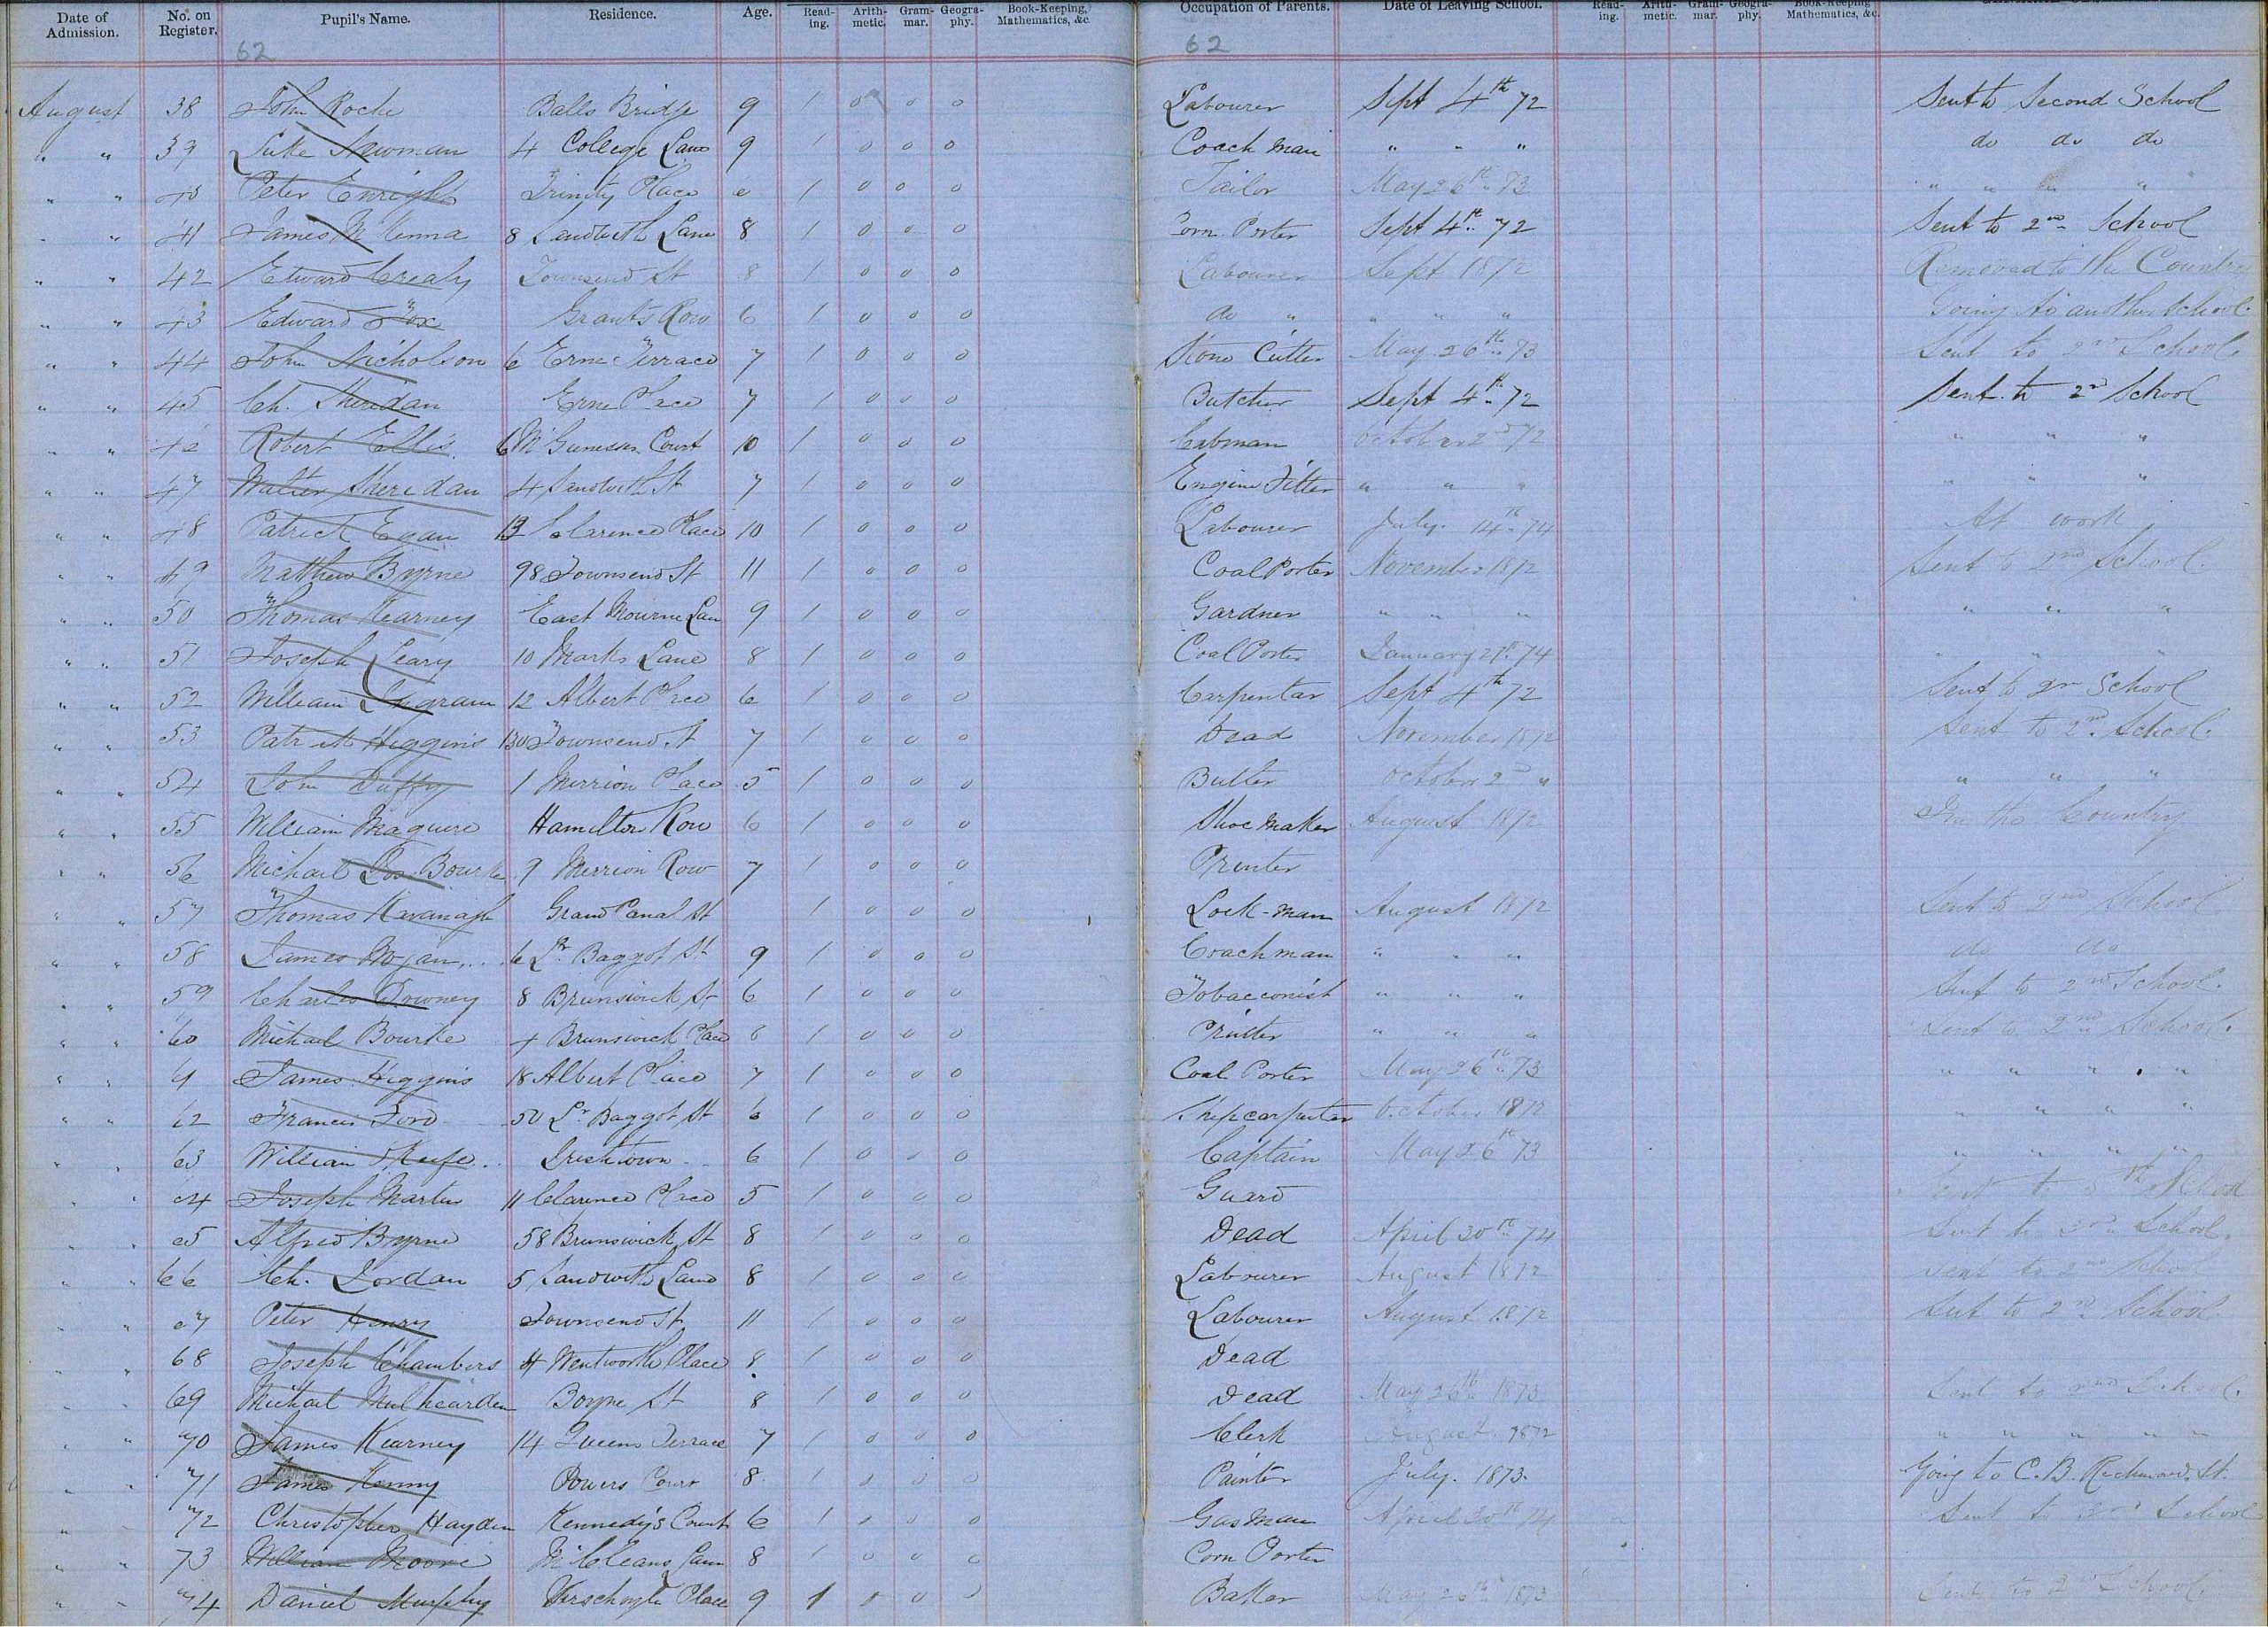 Date of Admission. No. on Register. Pupil's Name. Residence. Age. Reading. Arithmetic. Grammar. Geography. Book-Keeping, Mathematics, &c. Occupation of Parents. Date of Leaving School. Reading. Arithmetic. Grammar. Geography. Book-Keeping Mathematics, &c.
62 62
August 38 John Roche Balls Bridge 9 1 0 0 0 Labourer Sept 4th 72 Sent to Second School
" " 39 Luke Newman 4 College Lane 9 1 0 0 0 Coach Man " " " do do do
" " 40 Peter Enright Trinity Place 1 0 0 0 Tailor May 26th 73 " " " "
" " 41 James McKenna 8 Sandwith Lane 8 1 0 0 0 Corn Porter Sept 4th 72 Sent to 2nd School
" " 42 Edward Crealy Townsend St 8 1 0 0 0 Labourer Sept 1872 Removed to the Country
" " 43 Edward Fox Grants Row 6 1 0 0 0 do " " " " Going to another School.
" " 44 John Nicholson 6 Erne Terrace 7 1 0 0 0 Stone Cutter May 26th 73 Sent to 2nd School.
" " 45 Ch. Sheridan Erne Place 7 1 0 0 0 Butcher Sept 4th 72 Sent to 2nd School
" " Robert Ellis 6 Court 10 1 0 0 0 Cabman October 2nd 72 " " "
" " 47 Walter Sheridan 4 Sandwith St 7 1 0 0 0 Engine Fitter " " " " " "
" " 48 Patrick Egan 13 Clarence Place 10 1 0 0 0 Labourer July 14th 74 At work
" " 49 Matthew Byrne 98 Townsend St 11 1 0 0 0 Coal Porter November 1872 Sent to 2nd School.
" " 50 Thomas Kearney East Mourne Lan 9 1 0 0 0 Gardner " " " " " "
" " 51 Joseph Leary 10 Marks Lane 8 1 0 0 0 Coal Porter January 27th 74 " " "
" " 52 William Ingram 12 Albert Place 6 1 0 0 0 Carpentar Sept 4th 72 Sent to 2n School
" " 53 Patrick Higgins 130 Townsend St 7 1 0 0 0 Dead November 1872 Sent to 2nd School.
" " 54 John Duffy 1 Merrion Place 5 1 0 0 0 Butler October 2nd " " " "
" " 55 William Maguire Hamilton Row 6 1 0 0 0 Shoe Maker August 1872 In the Country
" " 56 Michael Bourke 9 Merrion Row 7 1 0 0 0 Printer
" " 57 Thomas Kavanagh Grand Canal St 1 0 0 0 Lock-man August 1872 Sent to 2nd School
" " 58 James 6 Lr Baggot St 9 1 0 0 0 Coachman " " " do do
" " 59 Charles Downey 8 Brunswick St 6 1 0 0 0 Tobacconist " " " Sent to 2nd School.
" " 60 Michael Bourke 4 Brunswick Place 8 1 0 0 0 Printer " " " Sent to 2nd School.
" " 61 James Higgins 18 Albert Place 7 1 0 0 0 Coal Porter May 26th 73 " " " "
" " 62 Francis Ford 50 Lr Baggot St 6 1 0 0 0 Shipcarpenter October 1872 " " " "
" " 63 William Irishtown 6 1 0 0 0 Captain May 26th 73 " " " "
" " 64 Joseph Martin 11 Clarence Place 5 1 0 0 0 Guard Sent to School
" " 65 Alfred Byrne 58 Brunswick St 8 1 0 0 0 Dead April 30th 74 Sent to School.
" " 66 Ch. Jordan 5 Sandwith Lane 8 1 0 0 0 Labourer August 1872 Sent to 2nd School
" " 67 Peter Henry Townsend St 11 1 0 0 0 Labourer August 1872 Sent to 2nd School
" " 68 Joseph Chambers 4 Wentworth Place 8 1 0 0 0 Dead
" " 69 Michael Mulhearden Boyne St 8 1 0 0 0 Dead May 26th 1873 Sent to 2nd School.
" " 70 James Kearney 14 Queens Terrace 7 1 0 0 0 Clerk August 1872 " " " " "
" " 71 James Kenny Powers Court 8 1 0 0 0 Painter July. 1873. Going to C.B. Richmond. St.
" " 72 Christopher Hayden Kennedy's Court 6 1 0 0 0 Gas Man April 30th 74 Sent to School
" " 73 William Moore McCleans Lane 8 1 0 0 0 Corn Porter
" " 74 Daniel Murphy Verschoyle Place 9 1 0 0 0 Baker May 26th 1873 Sent to 2nd School.